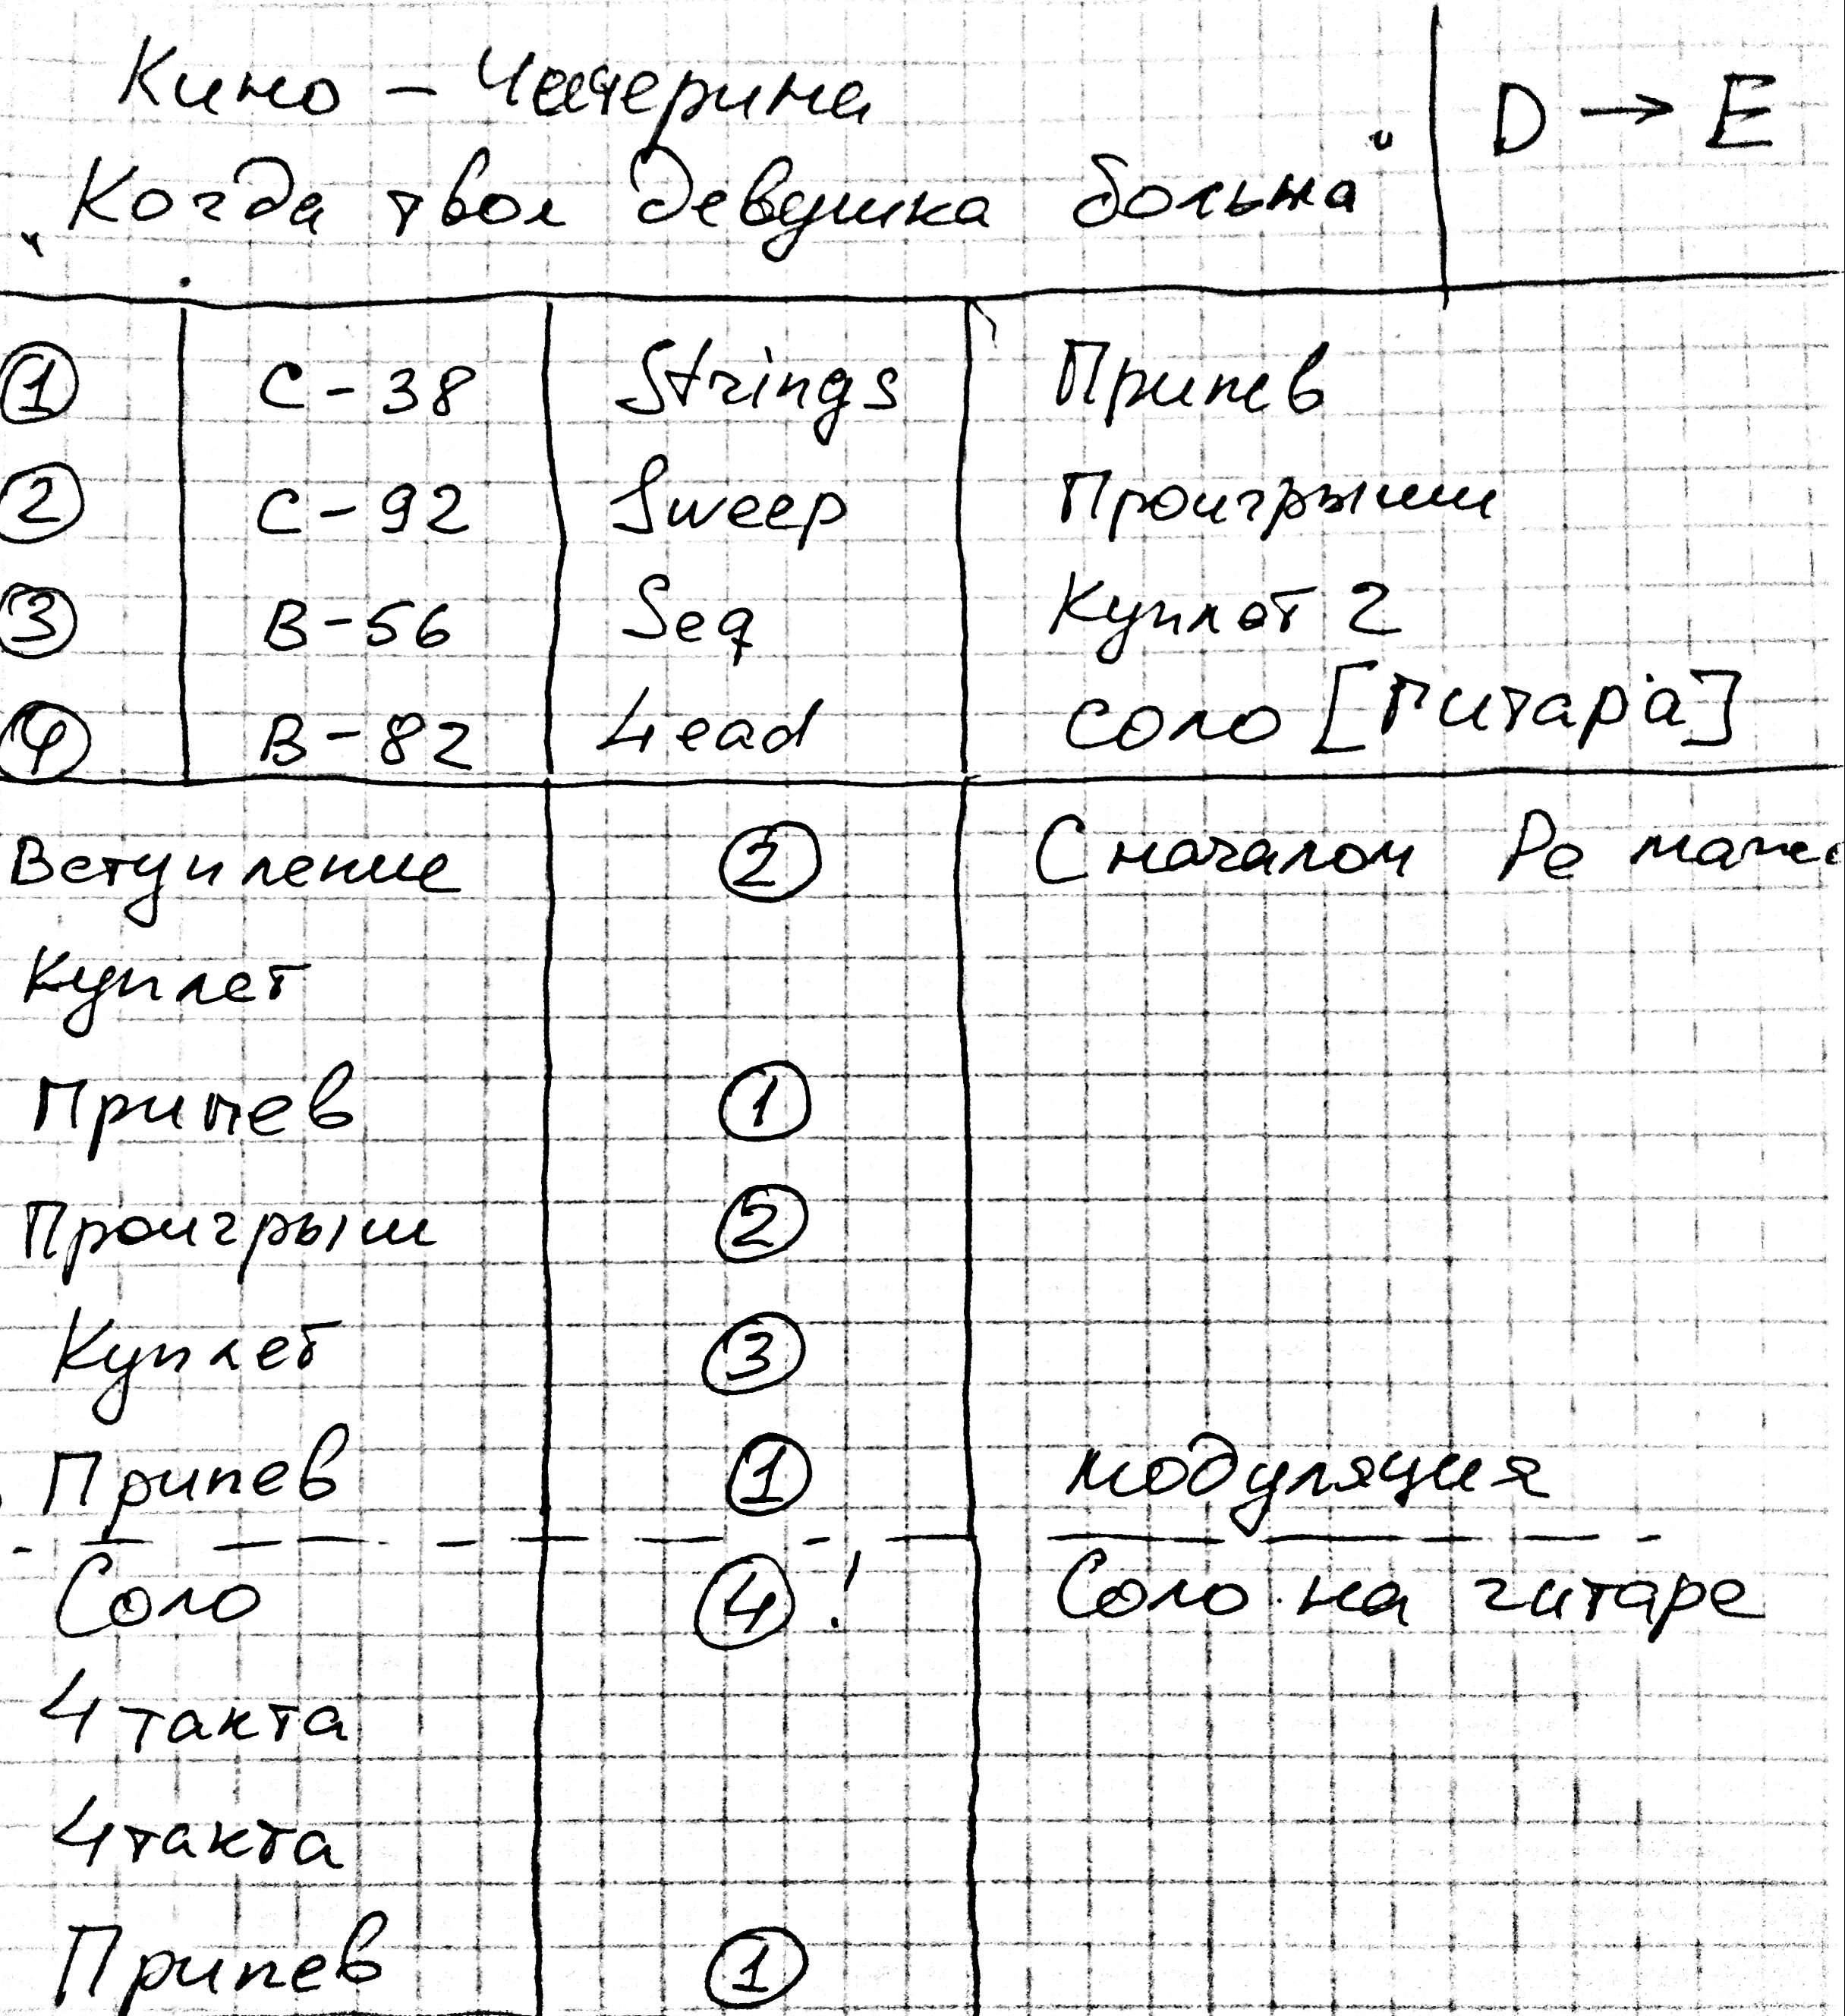 Кино – Чичерина
„Когда твоя девушка больна“ D → E
① C-38 Strings Припев
② C-92 Sweep Проигрыши
③ B-56 Seq Куплет 2
④ B-82 Lead Соло [Гитара]
Вступление ② С началом Ре
Куплет
Припев ①
Проигрыш ②
Куплет ③
Припев ① модуляция
Соло ④! Соло на гитаре
4 такта
4 такта
Припев ①